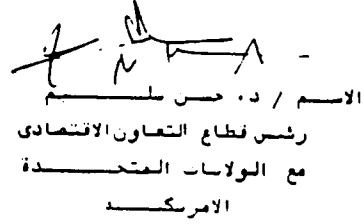 الاسم / د. حسن سليم
رئيس قطاع التعاون الاقتصادى
مع الولايات المتحدة
الامريكية